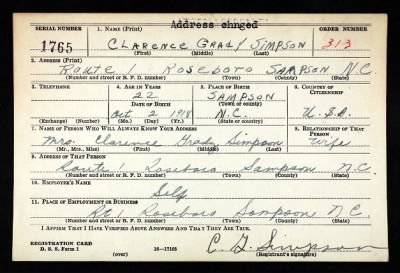 Address chnged
SERIAL NUMBER 1. NAME (Print) ORDER NUMBER
1765 CLARENCE GRADY SIMPSON 313
(First) (Middle) (Last)
2. ADDRESS (Print)
ROUTE 1 ROSEBORO SAMPSON N.C.
(Number and street or R. F. D. number) (Town) (County) (State)
3. TELEPHONE 4. AGE IN YEARS 5. PLACE OF BIRTH 6. COUNTRY OF CITIZENSHIP
22 SAMPSON
DATE OF BIRTH (Town or county)
Oct 2 1918 N.C. U.S.A.
(Exchange) (Number) (Mo.) (Day) (Yr.) (State or country)
7. NAME OF PERSON WHO WILL ALWAYS KNOW YOUR ADDRESS 8. RELATIONSHIP OF THAT PERSON
Mrs. Clarence Grady Simpson Wife
(Mr., Mrs., Miss) (First) (Middle) (Last)
9. ADDRESS OF THAT PERSON
Route 1 Roseboro Sampson N.C.
(Number and street or R. F. D. number) (Town) (County) (State)
10. EMPLOYER'S NAME
Self
11. PLACE OF EMPLOYMENT OR BUSINESS
Rt 1 Roseboro Sampson N.C.
(Number and street or R. F. D. number) (Town) (County) (State)
I AFFIRM THAT I HAVE VERIFIED ABOVE ANSWERS AND THAT THEY ARE TRUE.
C. G. Simpson
REGISTRATION CARD
D. S. S. Form 1 16-17105 (Registrant's signature)
(over)